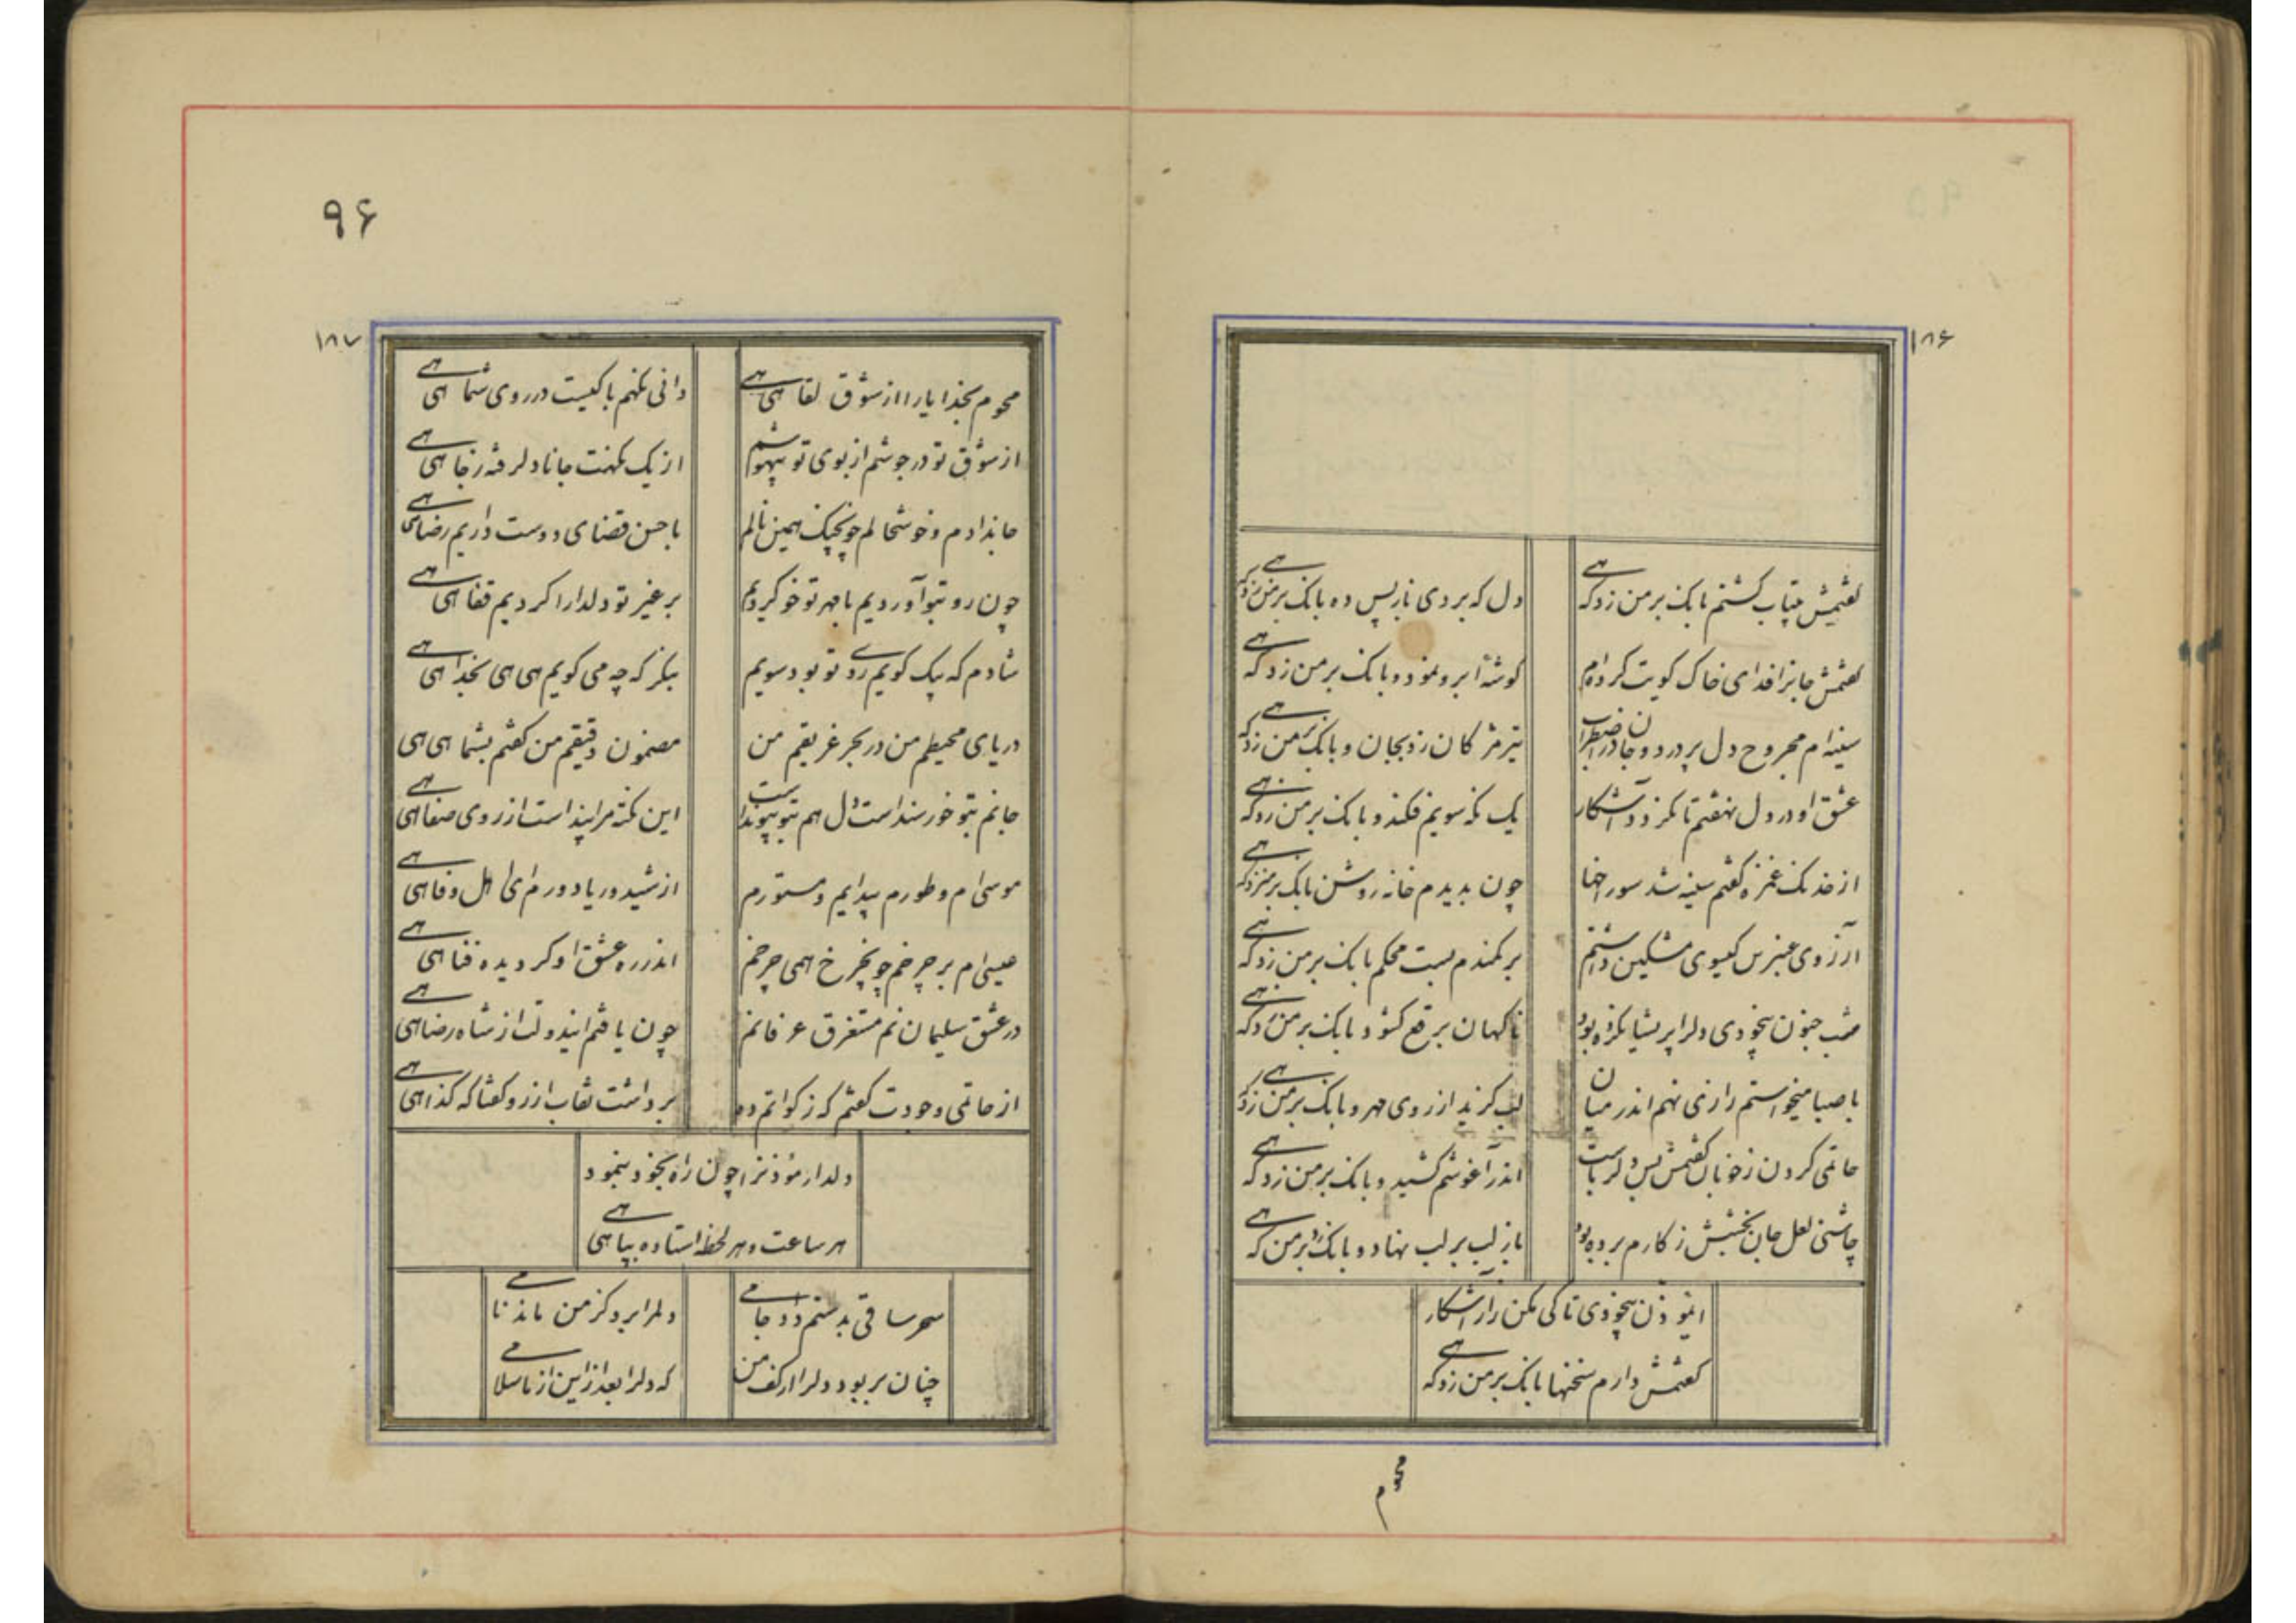 ۱۸۶
گفتمش بیتاب گشتم بانک بر من زد که هی
دل که بردی باز پس ده بانک بر من زد که هی
گفتمش جانرا فدای خاک کویت کرده‌ام
گوشهٔ ابرو نمود و بانک بر من زد که هی
سینه‌ام مجروح دل پر درد و جان در اضطراب
تیر مژگان زد بجان و بانک بر من زد که هی
عشق او در دل نهفتم تا نگردد آشکار
یک نگه سویم فکند و بانک بر من زد که هی
از خدنک غمزه گفتم سینه شد سوراخها
چون بدیدم خانه روشن بانک بر من زد که هی
آرزوی عنبرین گیسوی مشکین داشتم
بر کمندم بست محکم بانک بر من زد که هی
شب جنون بیخودی دلرا پریشان کرده بود
ناگهان برقع گشود و بانک بر من زد که هی
با صبا میخواستم رازی نهم اندر میان
لب گزید از روی مهر و بانک بر من زد که هی
حاتمی کردن ز خوبان گفتمش پس دلرباست
اندر آغوشم کشید و بانک بر من زد که هی
چاشنی لعل جان بخشش ز کارم برده بود
باز لب بر لب نهاد و بانک زد بر من که هی
ایموذن بیخودی تا کی مکن راز آشکار
گفتمش دارم سخنها بانک بر من زد که هی
محوم
۹۶
۱۸۷
محوم بخدا یارا از شوق لقا هی هی
دانی نگهم با کیست در روی شما هی هی
از شوق تو در جوشم از بوی تو بیهوشم
از یک نگهت جانا دل رفته ز جا هی هی
جاندادم و خوشحالم چون چنگ همین نالم
با حسن قضای دوست داریم رضا هی هی
چون رو بتو آوردیم با مهر تو خو کردیم
بر غیر تو دلدارا کردیم قفا هی هی
شادم که بیک کویم روی تو بود سویم
بنگر که چه می گویم هی هی بخدا هی هی
دریای محیطم من در بحر غریقم من
مضمون دقیقم من گفتم بشما هی هی
جانم بتو خورسند است دل هم بتو پیوند است
این نکته مرا پند است از روی صفا هی هی
موسی‌ام و طورم پیدایم و مستورم
از شید و ریا دورم ای اهل وفا هی هی
عیسی‌ام بر چرخم چون چرخ همی چرخم
اندر ره عشق او گردیده فنا هی هی
در عشق سلیمانم مستغرق عرفانم
چون یافتم ایندولت از شاه رضا هی هی
از حاتمی وجودت گفتم که زکواتم ده
برداشت نقاب از رو گفتا که گدا هی هی
دلدار مؤذنرا چون راه بخود بنمود
هر ساعت و هر لحظه استاده بپا هی هی
سحر ساقی بدستم داد جامی
دلم را برد کز من ماند نامی
چنان بربود دلرا از کف من
که دلرا بعد ازین از ما سلامی